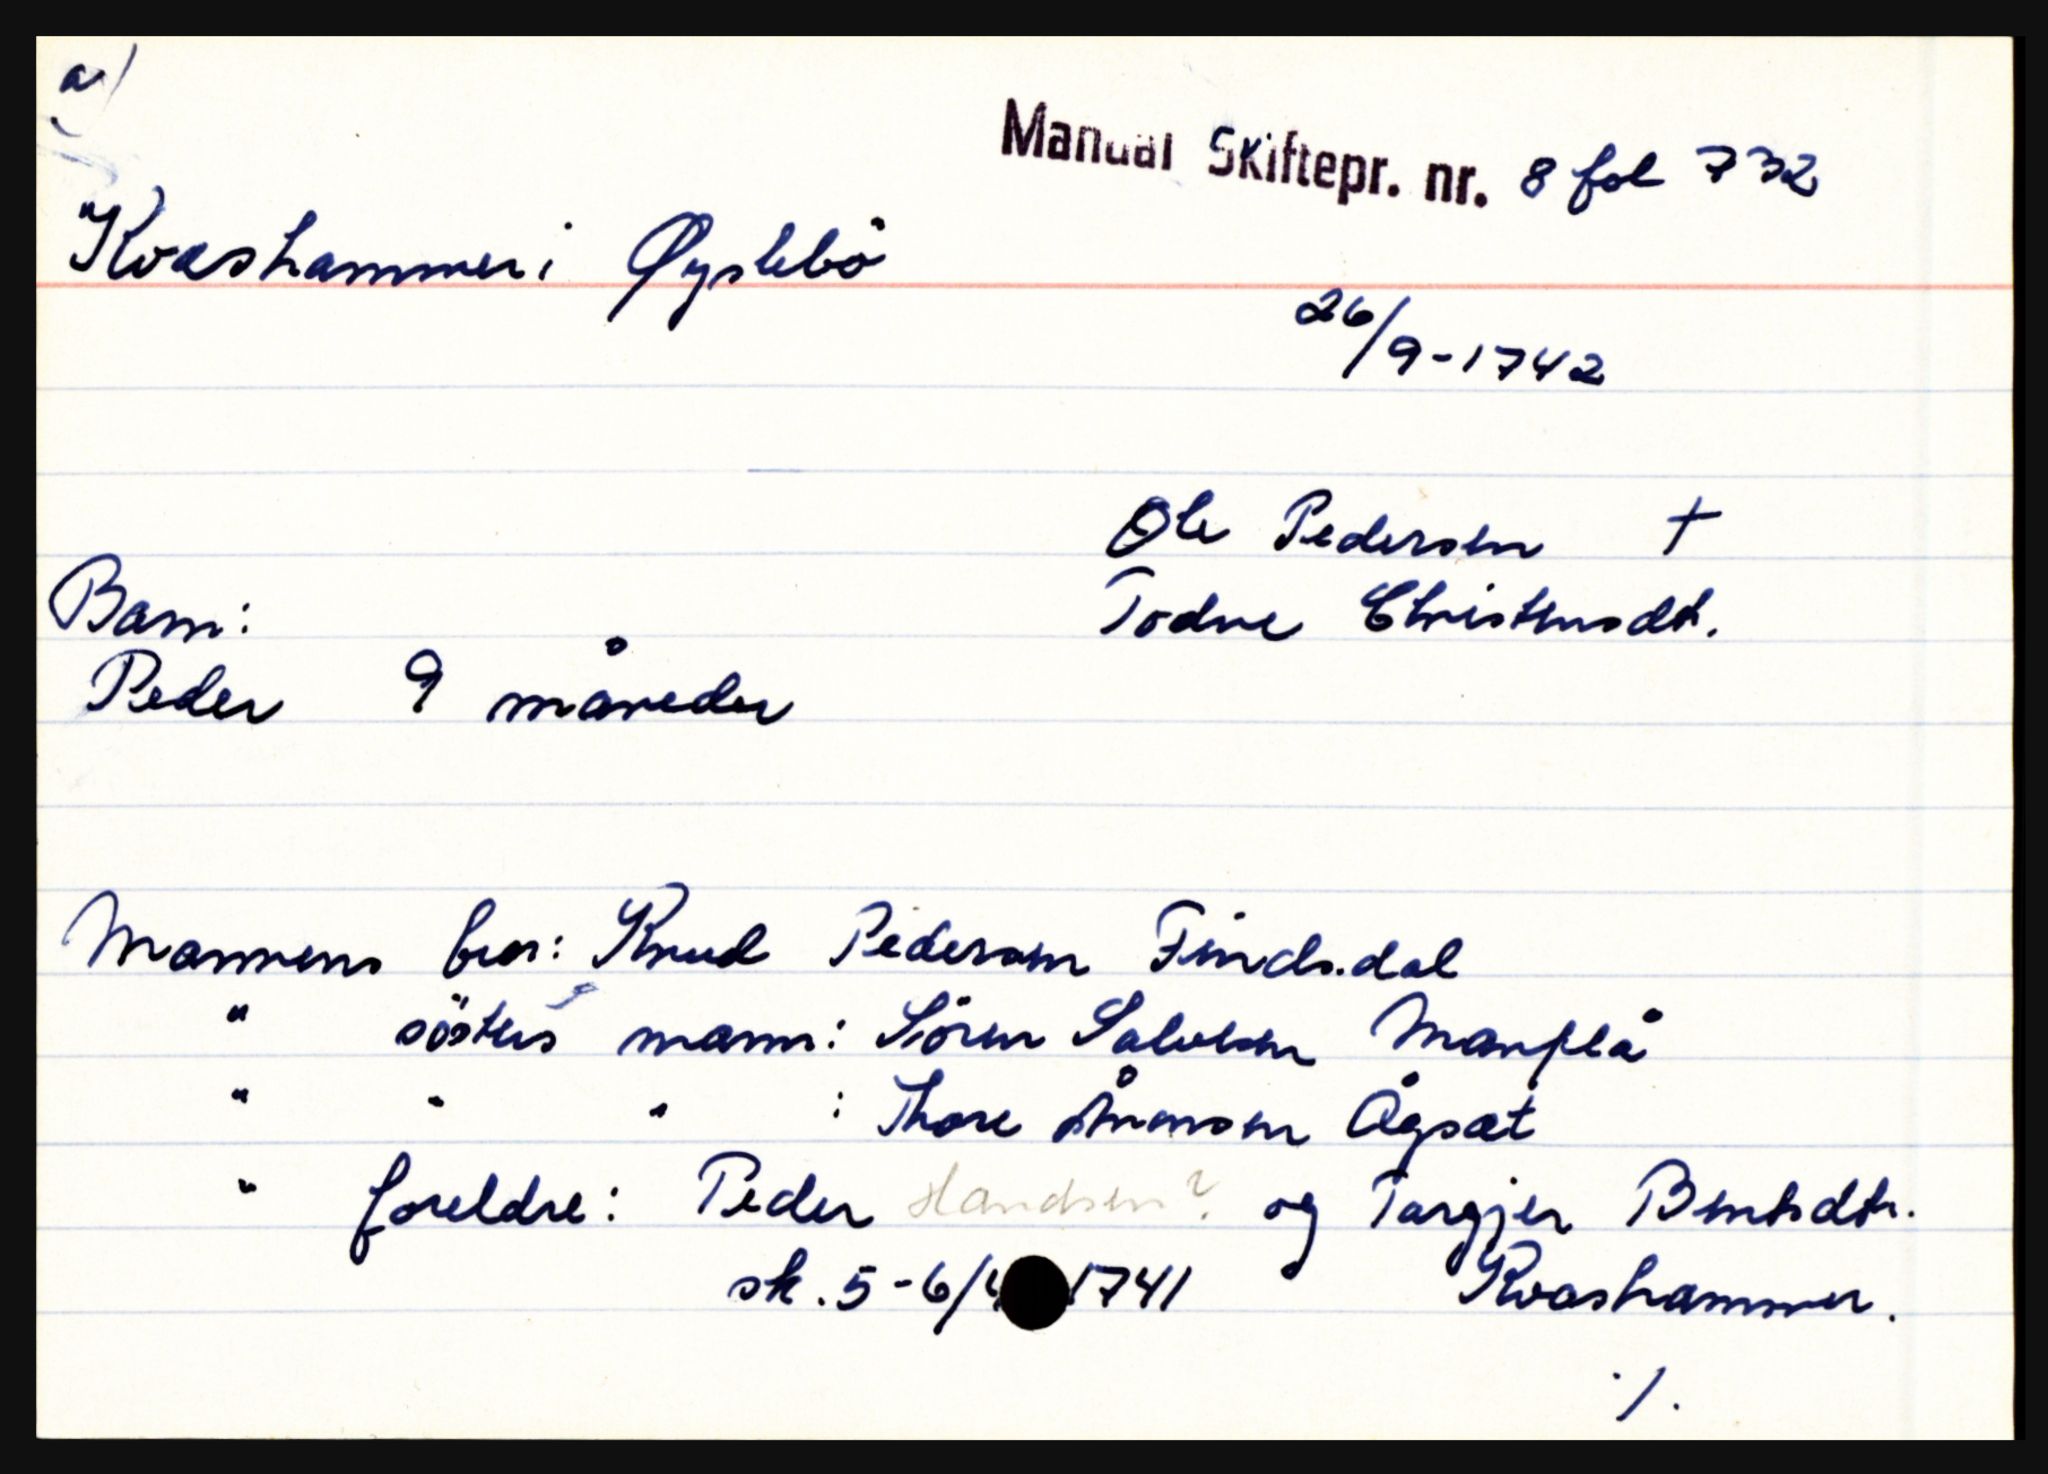 a)
Manual Skiftepr. nr. 8 fol 732
Kvashammer i Øyslebö
26/9-1742
Ole Pedersen †
Todne Christensdt.
Barn:
Peder 9 måneder
Mannens bror: Knud Pedersen Findsdal
" søsters mann: Sören Salvesen Manflå
" " " : Thore Ånensen Ågsæt
" foreldre: Peder Handsen? og Targjer Bentsdtr.
sk. 5-6/4 1741 Kvashammer.
./.